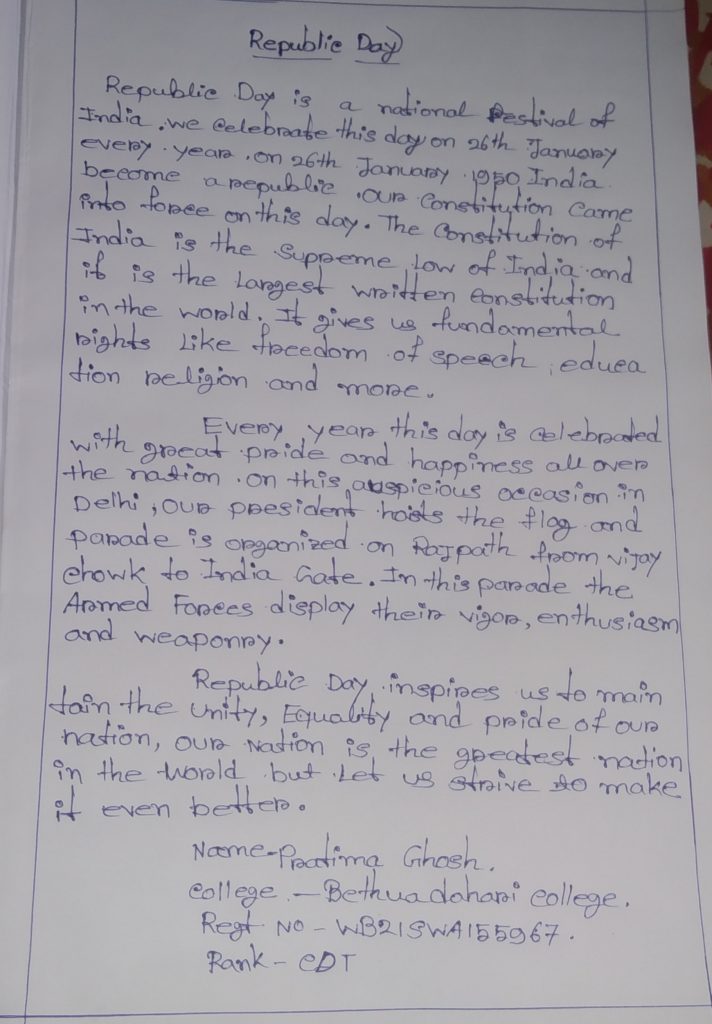 Republic Day
Republic Day is a national Festival of
India. we celebrate this day on 26th January
every year. on 26th January 1950 India
become a republic. our Constitution came
into force on this day. The Constitution of
India is the Supreme Low of India and
it is the Largest written constitution
in the world. It gives us fundamental
rights Like freedom of speech, educa
tion religion and more.
Every year this day is celebrated
with great pride and happiness all over
the nation. on this auspicious occasion in
Delhi, our president hoists the flag and
parade is organized on Rajpath from vijay
chowk to India Gate. In this parade the
Armed Forces display their vigor, enthusiasm
and weaponry.
Republic Day, inspires us to main
tain the Unity, Equality and pride of our
nation, our Nation is the greatest nation
in the world but Let us strive to make
it even better.
Name-Pratima Ghosh.
college - Bethuadohari college.
Regt NO - WB21SWA155967.
Rank - CDT